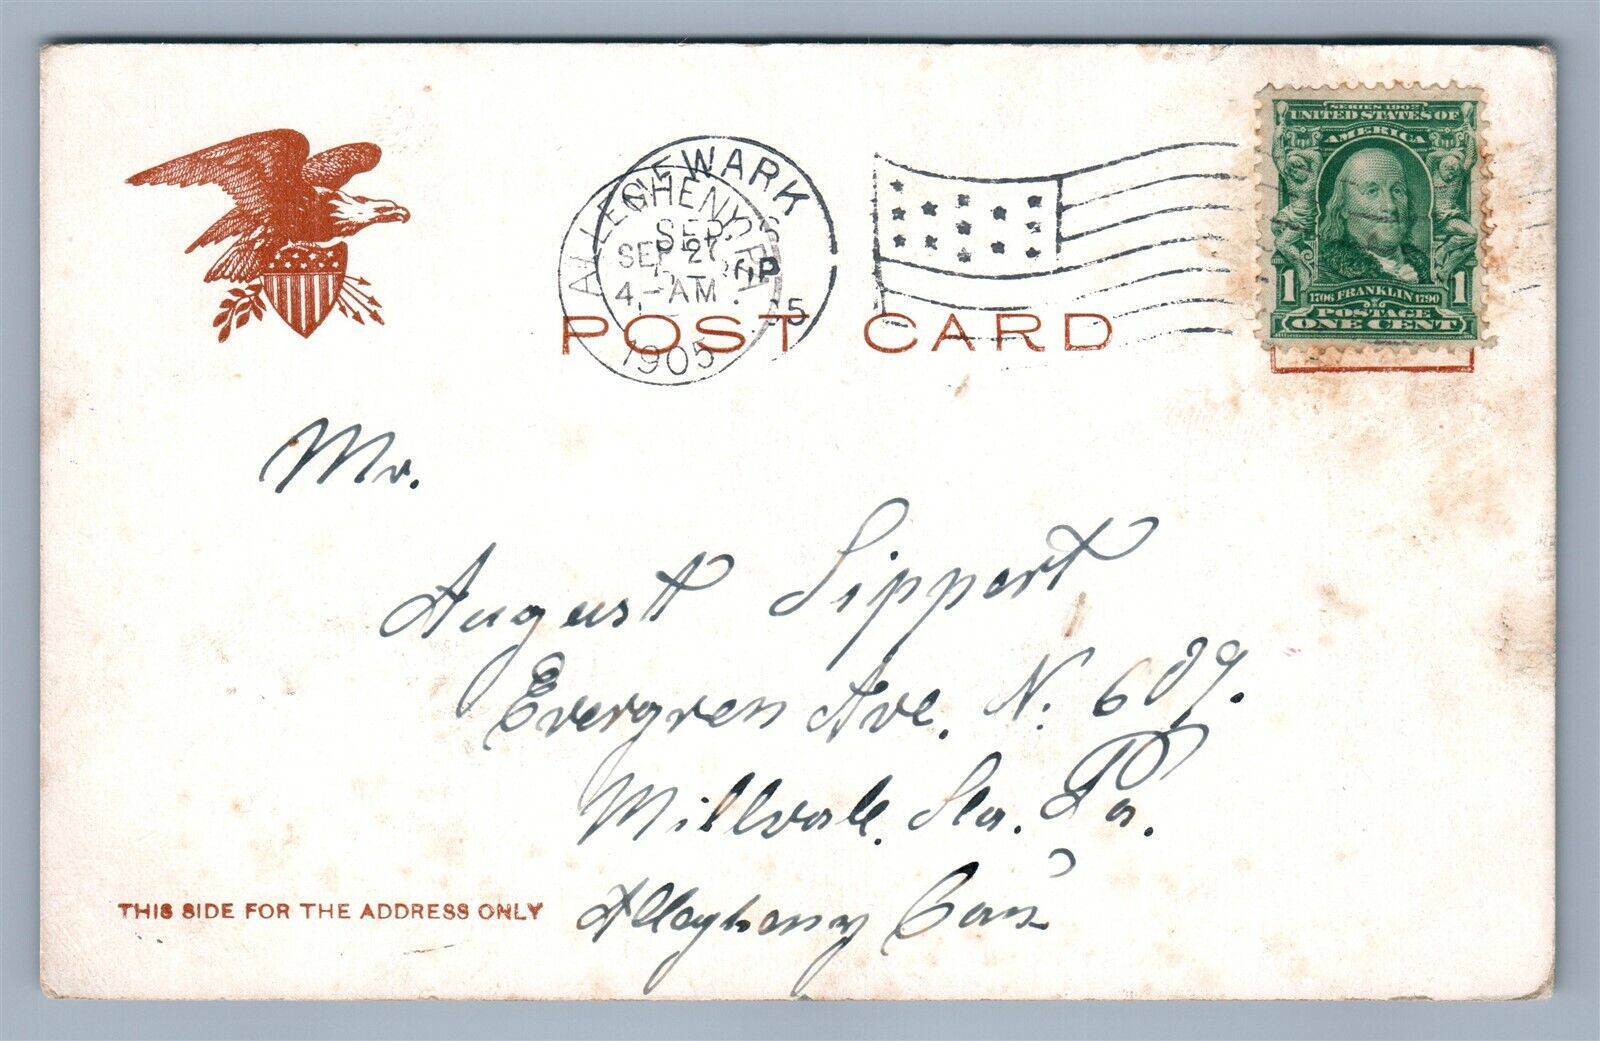 SERIES 1902
UNITED STATES OF
AMERICA
1 1
1706 FRANKLIN 1790
POSTAGE
ONE CENT
NEWARK
SEP.
5
ALLEGHENY, PA
SEP 27
4-AM
1905
POST CARD
Mr.
August Sippert
Evergren Ave. N. 609.
Millvale. Sta. Pa.
Alleghany Coun
THIS SIDE FOR THE ADDRESS ONLY